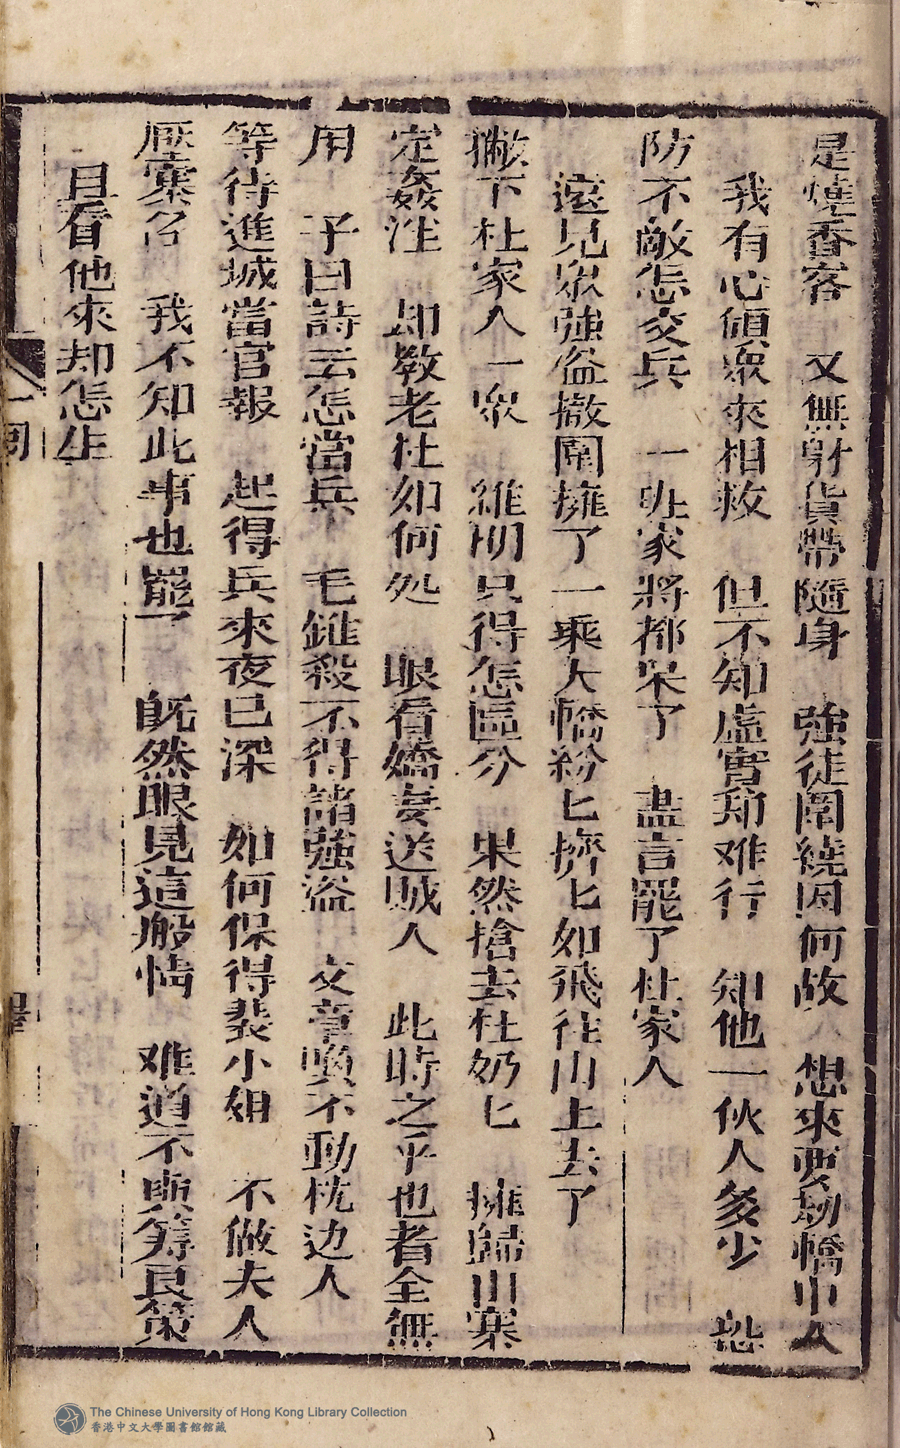 是燒香客　又無財貨帶隨身　強徒圍繞因何故　想來要刼轎中人
我有心傾衆來相救　但不知虛實却难行　知他一伙人多少　恐
防不敵怎交兵　一班家將都呆了　盡言罷了杜家人
遠見衆強盜撤圍擁了一乘大轎紛匕擠匕如飛往山上去了
撇下杜家人一衆　維明只得怎區分　果然搶去杜奶匕　擁歸山寨
定姦淫　却教老杜如何処　眼看嬌妻送賊人　此時之乎也者全無
用　子曰詩云怎當兵　毛錐殺不得諸強盜　文章喚不動枕边人
等待進城當官報　起得兵來夜已深　如何保得裴小姐　不做夫人
壓寨名　我不知此事也罷了　既然眼見這般情　难道不與籌良策
且看他來却怎生
一囘
The Chinese University of Hong Kong Library Collection
香港中文大學圖書館館藏